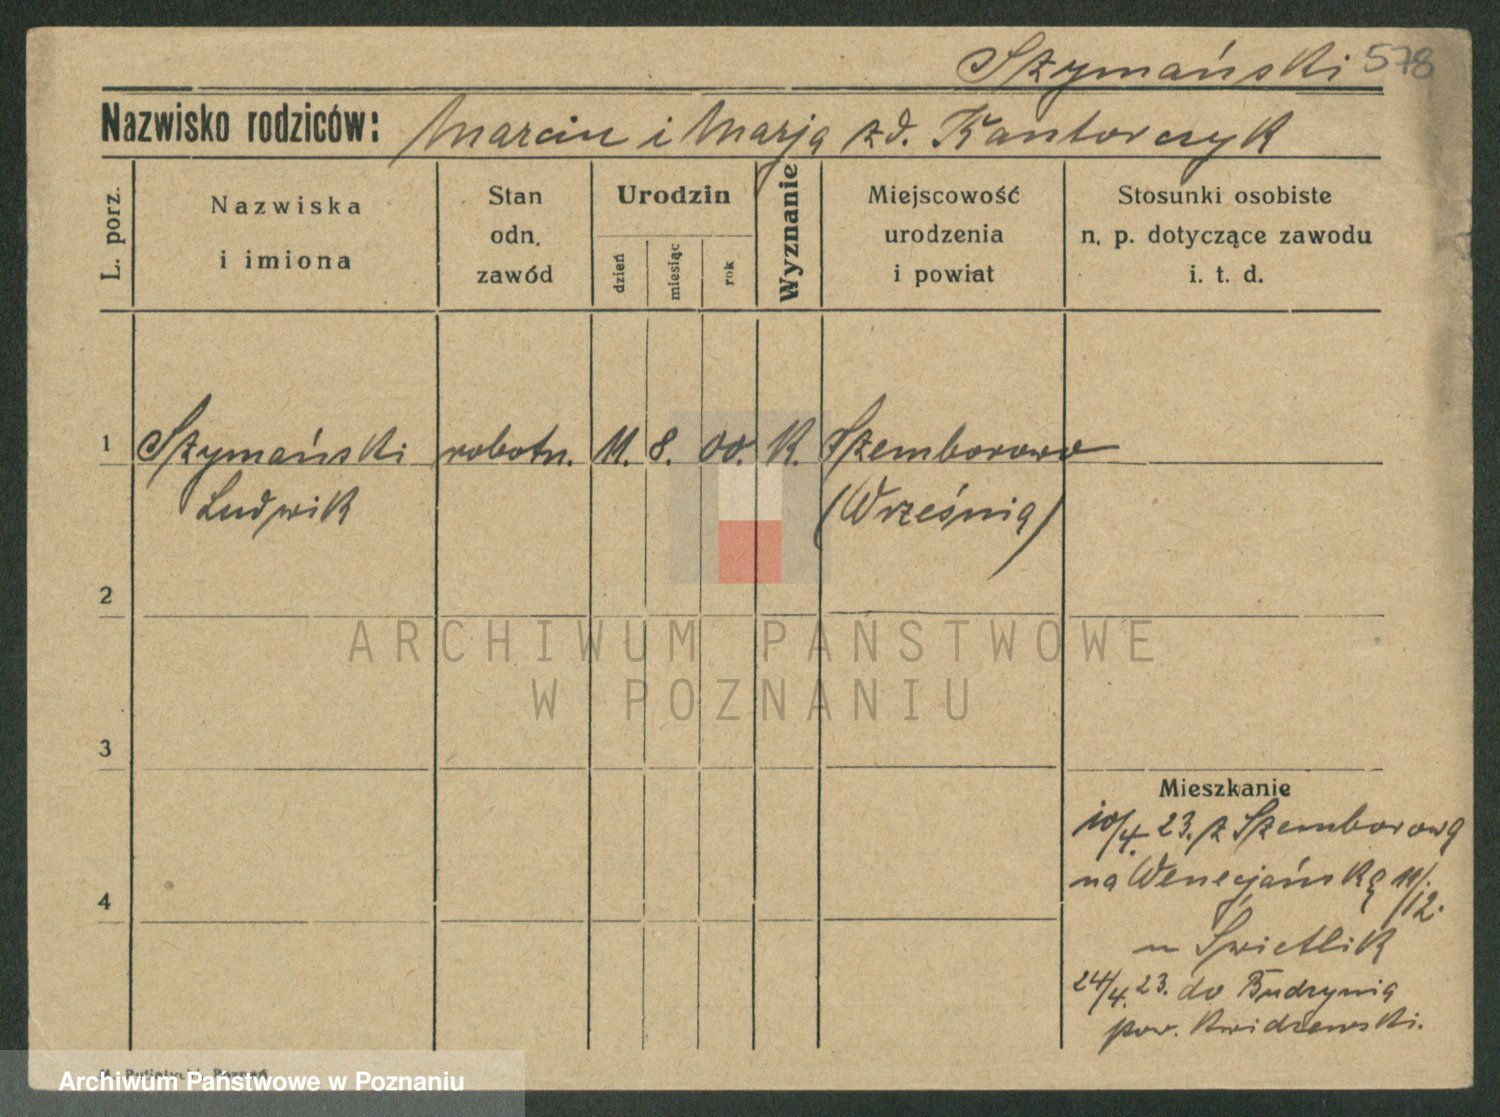 Szymański 578
Nazwisko rodziców: Marcin i Marja zd. Kantorczyk
L. porz.
Nazwiska
i imiona
Stan
odn.
zawód
Urodzin
dzień
miesiąc
rok
Wyznanie
Miejscowość
urodzenia
i powiat
Stosunki osobiste
n. p. dotyczące zawodu
i. t. d.
1 Szymański robotn. 11. 8. 00. K. Szemborowo
Ludwik (Września)
2
ARCHIWUM PAŃSTWOWE
W POZNANIU
3
Mieszkanie
10/4. 23. z Szemborowa
na Wenecjańską 11/12.
4
u Świetlik
24/4. 23. do Budzynia
pow.
Archiwum Państwowe w Poznaniu